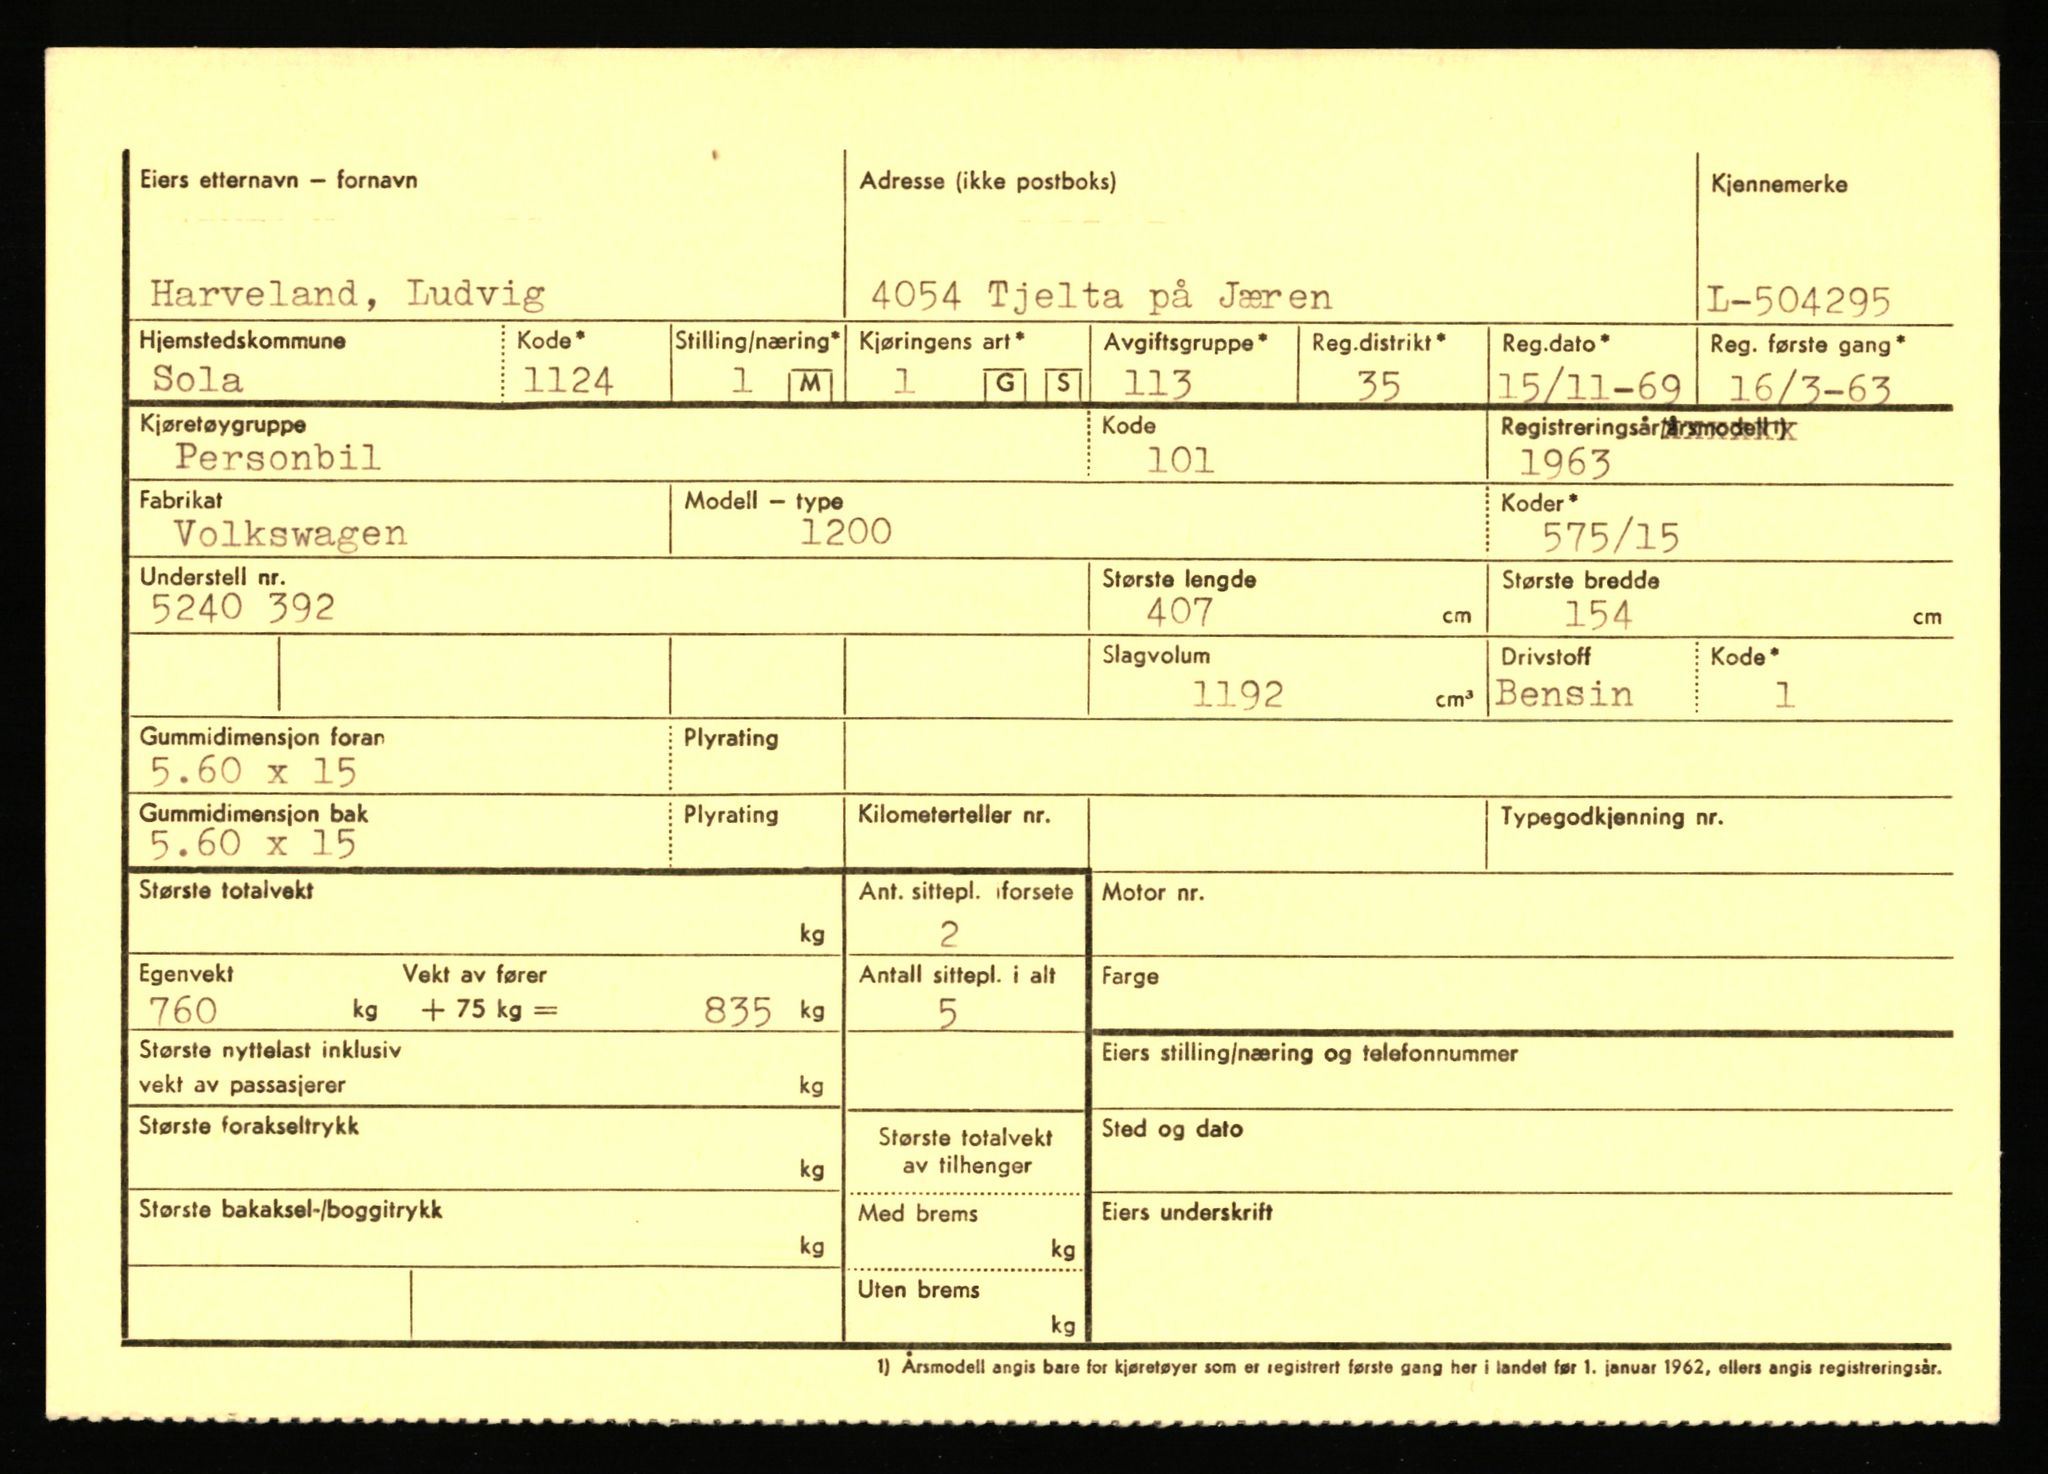 Eiers etternavn – fornavn Adresse (ikke postboks) Kjennemerke
Harveland, Ludvig 4054 Tjelta på Jæren L-504295
Hjemstedskommune Kode* Stilling/næring* Kjøringens art* Avgiftsgruppe* Reg.distrikt* Reg.dato* Reg. første gang*
Sola 1124 1 M 1 G S 113 35 15/11-69 16/3-63
Kjøretøygruppe Kode Registreringsår/årsmodell 1)
Personbil 101 1963
Fabrikat Modell – type Koder*
Volkswagen 1200 575/15
Understell nr. Største lengde Største bredde
5240 392 407 cm 154 cm
Slagvolum Drivstoff Kode*
1192 cm³ Bensin 1
Gummidimensjon foran Plyrating
5.60 x 15
Gummidimensjon bak Plyrating Kilometerteller nr. Typegodkjenning nr.
5.60 x 15
Største totalvekt Ant. sittepl. i forsete Motor nr.
kg 2
Egenvekt Vekt av fører Antall sittepl. i alt Farge
760 kg + 75 kg = 835 kg 5
Største nyttelast inklusiv Eiers stilling/næring og telefonnummer
vekt av passasjerer kg
Største forakseltrykk Største totalvekt Sted og dato
kg av tilhenger
Største bakaksel-/boggitrykk Med brems Eiers underskrift
kg kg
Uten brems
kg
1) Årsmodell angis bare for kjøretøyer som er registrert første gang her i landet før 1. januar 1962, ellers angis registreringsår.